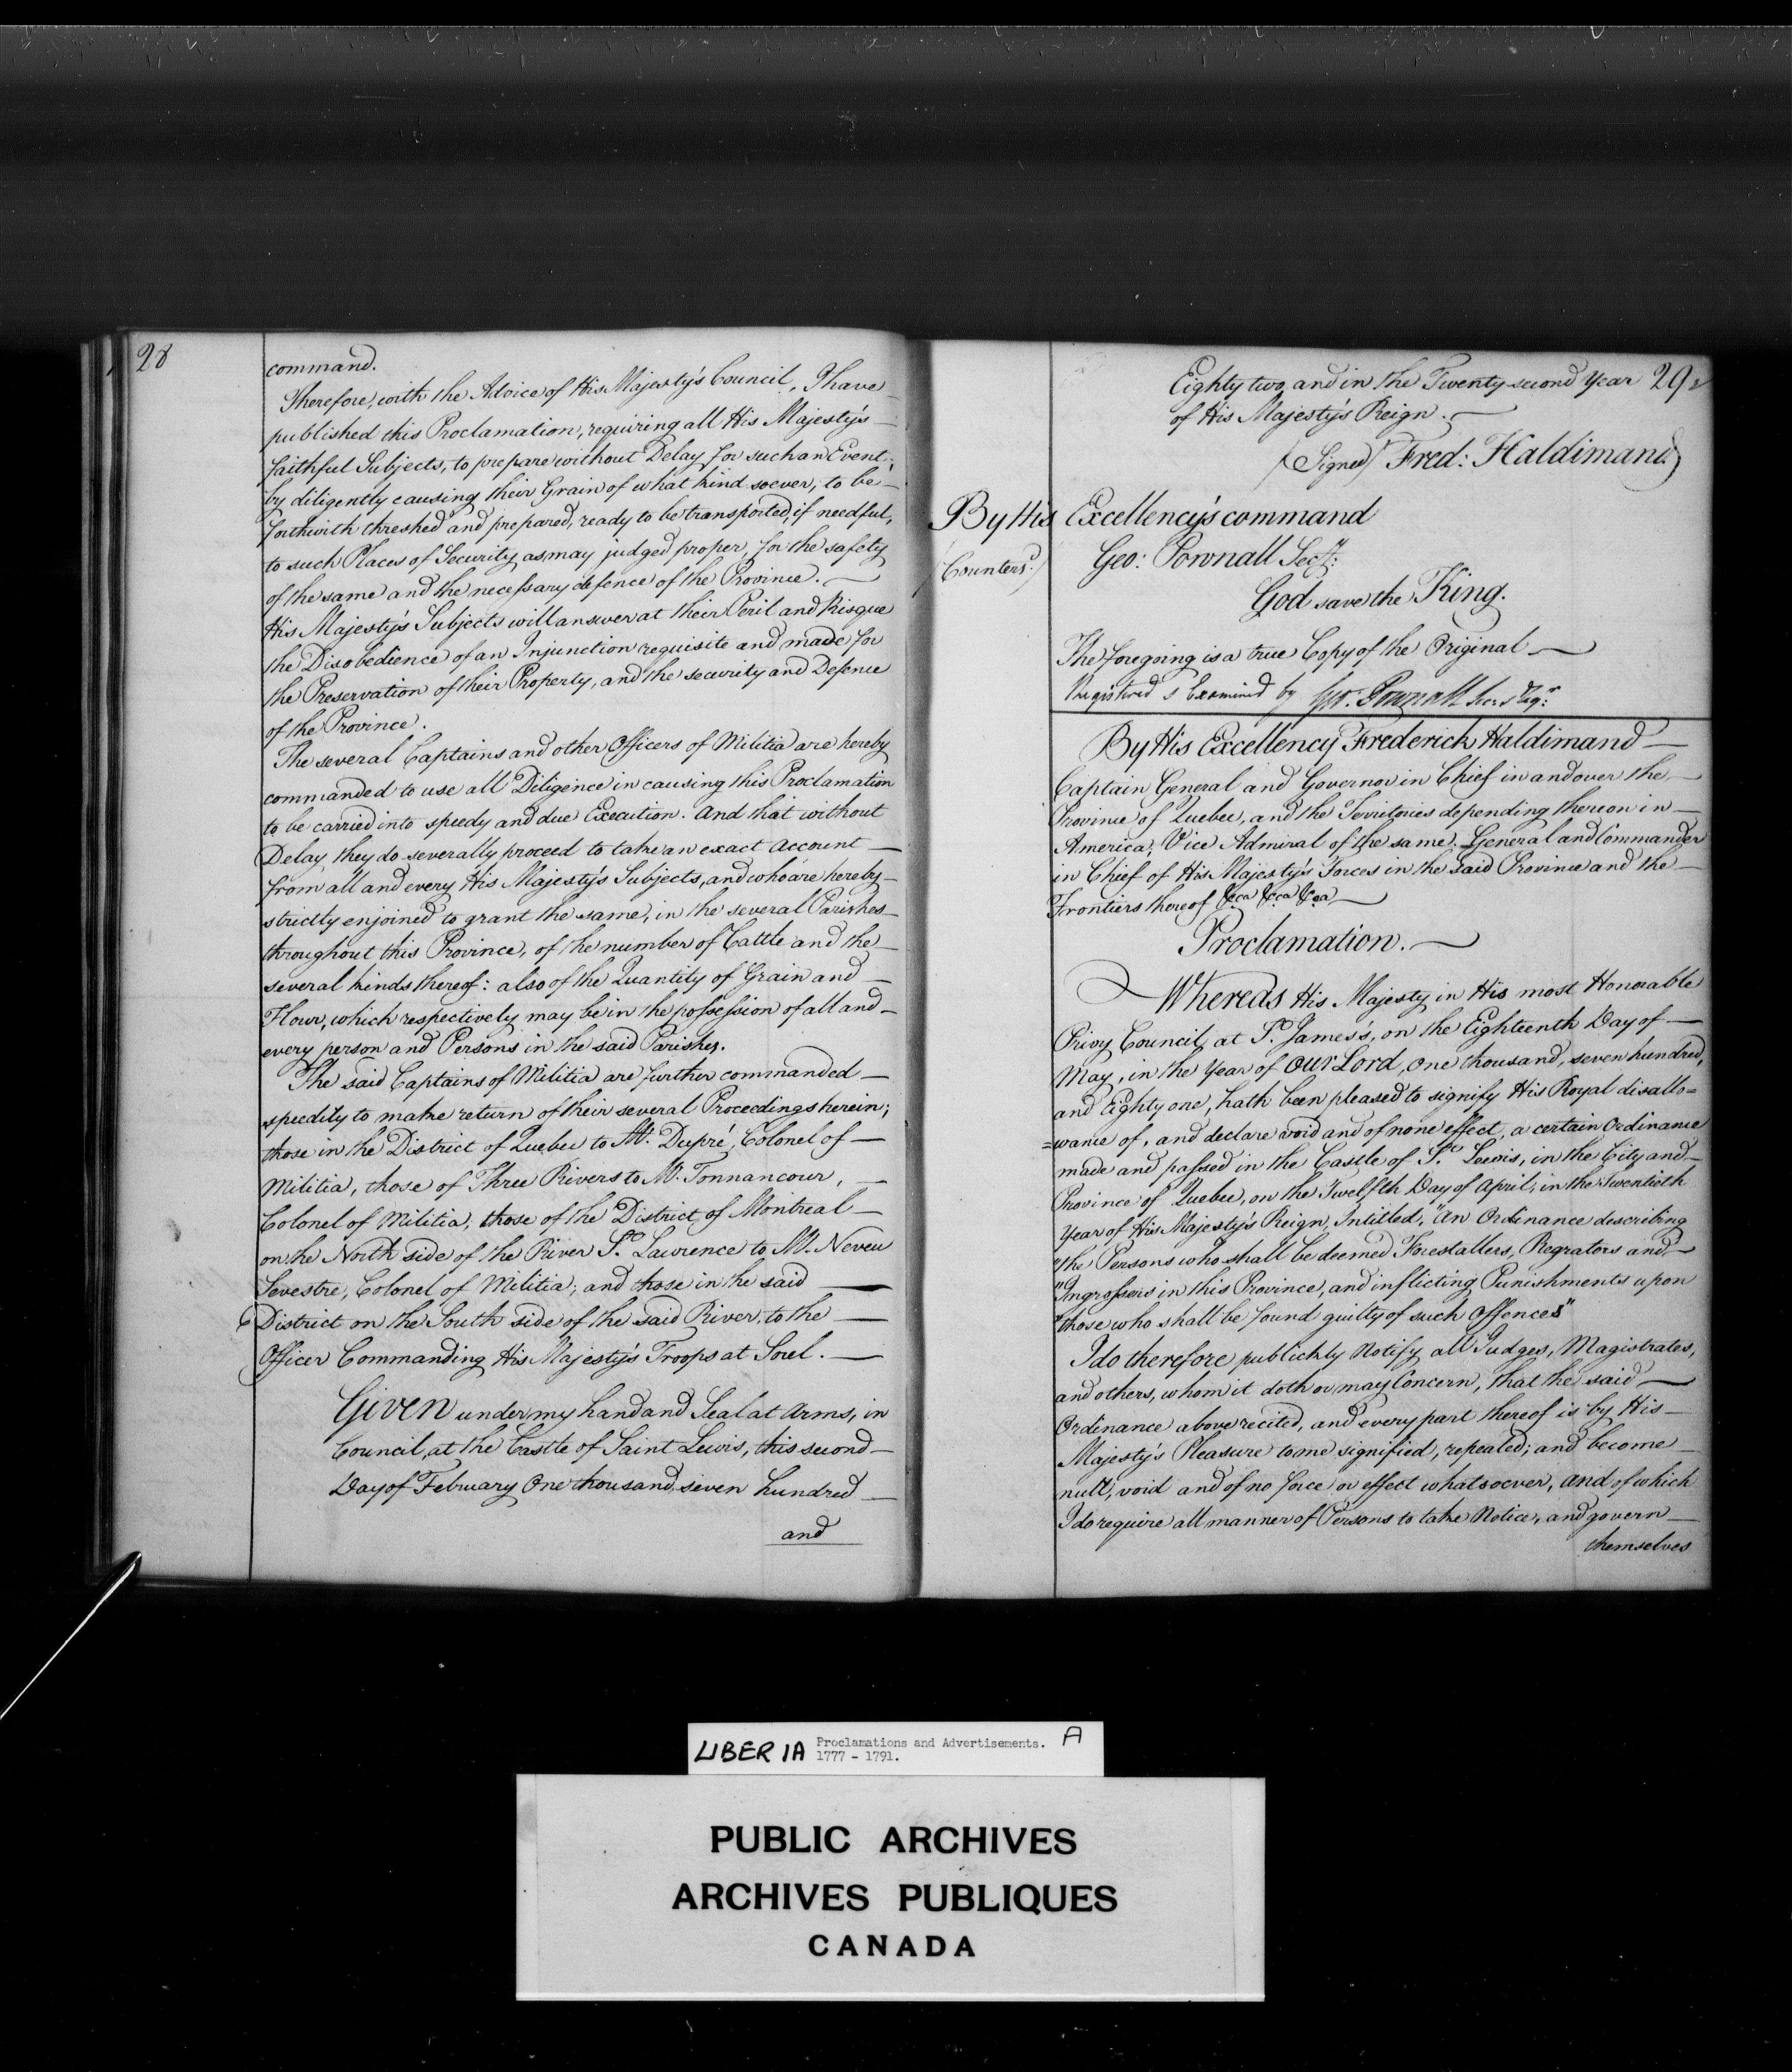 28
command.
Therefore, with the Advice of His Majesty's Council, I have
published this Proclamation, requiring all His Majesty's
faithful Subjects, to prepare without Delay for such an Event;
by diligently causing their Grain of what kind soever, to be
forthwith threshed and prepared, ready to be transported, if needful,
to such Places of Security as may judged proper, for the safety
of the same and the necessary defence of the Province.
His Majesty's Subjects will answer at their Peril and Risque
the Disobedience of an Injunction requisite and made for
the Preservation of their Property, and the security and Defence
of the Province.
The several Captains and other Officers of Militia are hereby
commanded to use all Diligence in causing this Proclamation
to be carried into speedy and due Execution. And that without
Delay they do severally proceed to take an exact Account
from all and every His Majesty's Subjects, and who are hereby
strictly enjoined to grant the same, in the several Parishes
throughout this Province, of the number of Cattle and the
several kinds thereof: also of the Quantity of Grain and
Flour, which respectively may be in the possession of all and
every person and Persons in the said Parishes.
The said Captains of Militia are further commanded
speedily to make return of their several Proceedings herein;
those in the District of Quebec to Mr. Dupré, Colonel of
Militia, those of Three Rivers to Mr. Tonnancour,
Colonel of Militia, those of the District of Montreal
on the North side of the River St. Lawrence to Mr. Neveu
Sevestre, Colonel of Militia; and those in the said
District on the South side of the said River, to the
Officer Commanding His Majesty's Troops at Sorel.
Given under my hand and Seal at Arms, in
Council, at the Castle of Saint Lewis, this second
Day of February One thousand, seven hundred
and
Eighty two, and in the Twenty second Year 29
of His Majesty's Reign.
(Signed) Fred: Haldimand)
By His Excellency's command
(Counters.d) Geo: Pownall Secy:
God save the King.
The foregoing is a true Copy of the Original
Registered & Examined by Geo. Pownall Sec. & Regr:
By His Excellency Frederick Haldimand
Captain General and Governor in Chief in and over the
Province of Quebec, and the Territories depending thereon in
America, Vice Admiral of the same, General and Commander
in Chief of His Majesty's Forces in the said Province and the
Frontiers thereof &ca &ca &ca
Proclamation.
Whereas His Majesty in His most Honorable
Privy Council, at St. James's, on the Eighteenth Day of
May, in the Year of Our Lord, One thousand, seven hundred,
and Eighty one, hath been pleased to signify His Royal disallo=
=wance of, and declare void and of none effect, a certain Ordinance
made and passed in the Castle of St. Lewis, in the City and
Province of Quebec, on the Twelfth Day of April, in the Twentieth
Year of His Majesty's Reign, Intitled, "An Ordinance describing
"the Persons who shall be deemed Forestallers, Regrators and
"Ingrossers in this Province, and inflicting Punishments upon
"those who shall be found guilty of such Offences"
I do therefore publickly Notify all Judges, Magistrates,
and others, whom it doth or may Concern, that the said
Ordinance above recited, and every part thereof is by His
Majesty's Pleasure to me signified, repealed; and become
null, void and of no force or effect whatsoever, and of which
I do require all manner of Persons to take Notice, and govern
themselves
LIBER IA Proclamations and Advertisements. A
1777 - 1791.
PUBLIC ARCHIVES
ARCHIVES PUBLIQUES
CANADA